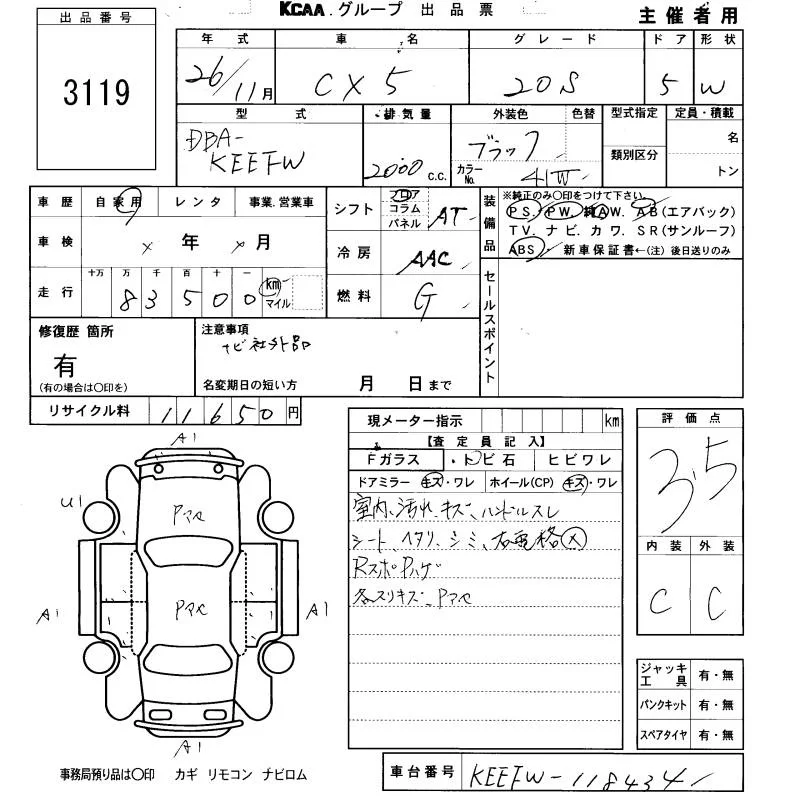 KCAA.グループ 出品票
主催者用
出品番号
3119
年式 車名 グレード ドア 形状
26/11月 CX5 20S 5 W
型式 排気量 外装色 色替 型式指定 定員・積載
DBA-
KEEFW
2000 c.c.
ブラック
カラーNo. 41W
類別区分
名
トン
車歴 自家用 レンタ 事業.営業車
車検 × 年 × 月
走行 十万 万 千 百 十 一
8 3 5 0 0 km マイル
シフト フロア コラム パネル AT
冷房 AAC
燃料 G
装備品
※純正のみ〇印をつけて下さい。
PS. PW. 純AW. AB(エアバック)
TV. ナビ. カワ. SR(サンルーフ)
ABS・新車保証書←(注)後日送りのみ
セールスポイント
修復歴 箇所
有
(有の場合は〇印を)
注意事項
ナビ社外品
名変期日の短い方 月 日まで
リサイクル料 11650円
現メーター指示 km
【査定員記入】
Fガラス ・トビ石 ヒビワレ
ドアミラー キズ・ワレ ホイール(CP) キズ・ワレ
室内、汚れ、キズ、ハンドルスレ
シート、ヘタリ、シミ、
Rスポ Pハゲ
各スリキズ
評価点
3.5
内装 外装
C C
ジャッキ工具 有・無
パンクキット 有・無
スペアタイヤ 有・無
A1
U1
A1
A1
A1
事務局預り品は〇印 カギ リモコン ナビロム
車台番号 KEEFW-118434